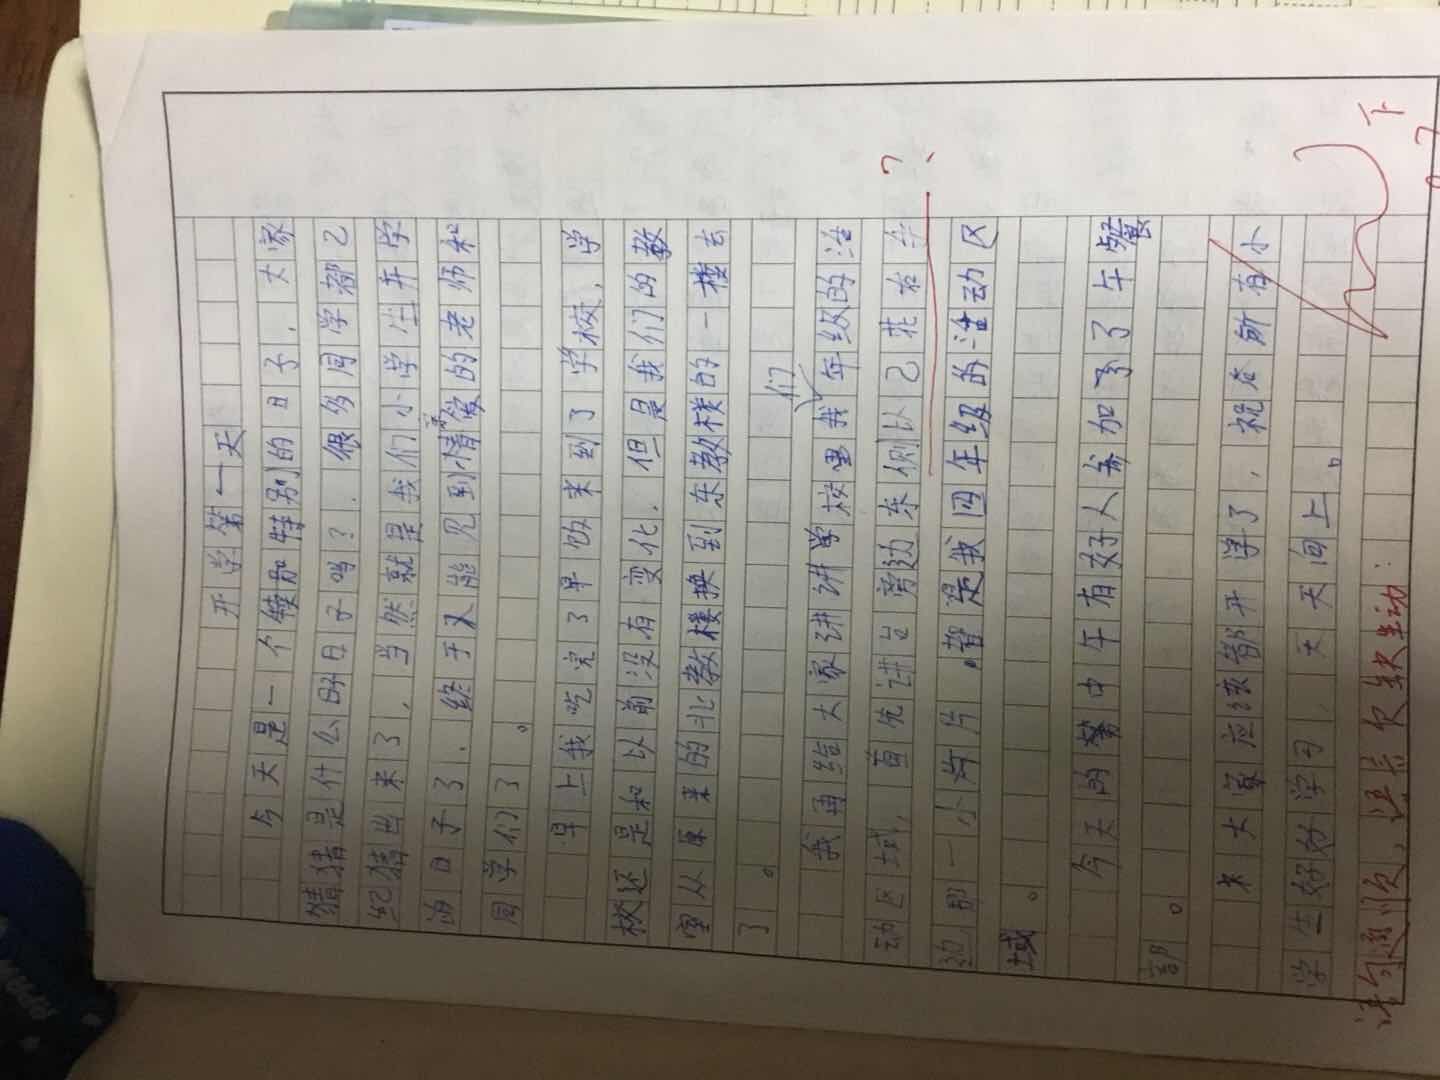 开学第一天
今天是一个特别特别的日子，大家
猜猜是什么的日子吗？很多同学都已
经猜出来了，当然就是我们小学生开学
的日子了，终于又能见到亲爱的老师和
同学们了。
早上我吃完了早饭来到了学校，学
校还是和以前没有变化，但是我们的教
室从原来的北教楼换到东教楼的一楼去
了。
我再给大家讲讲学校里我们年级的活
动区域，首先讲台旁边东侧以乙花右
边，那一小片片，都是我四年级的活动区
域。
今天的中午有好人参加了了午餐
部。
来大家应该都开学了，祝在所有小
学生好好学习，天天向上。
语句通顺，语言欠缺生动！